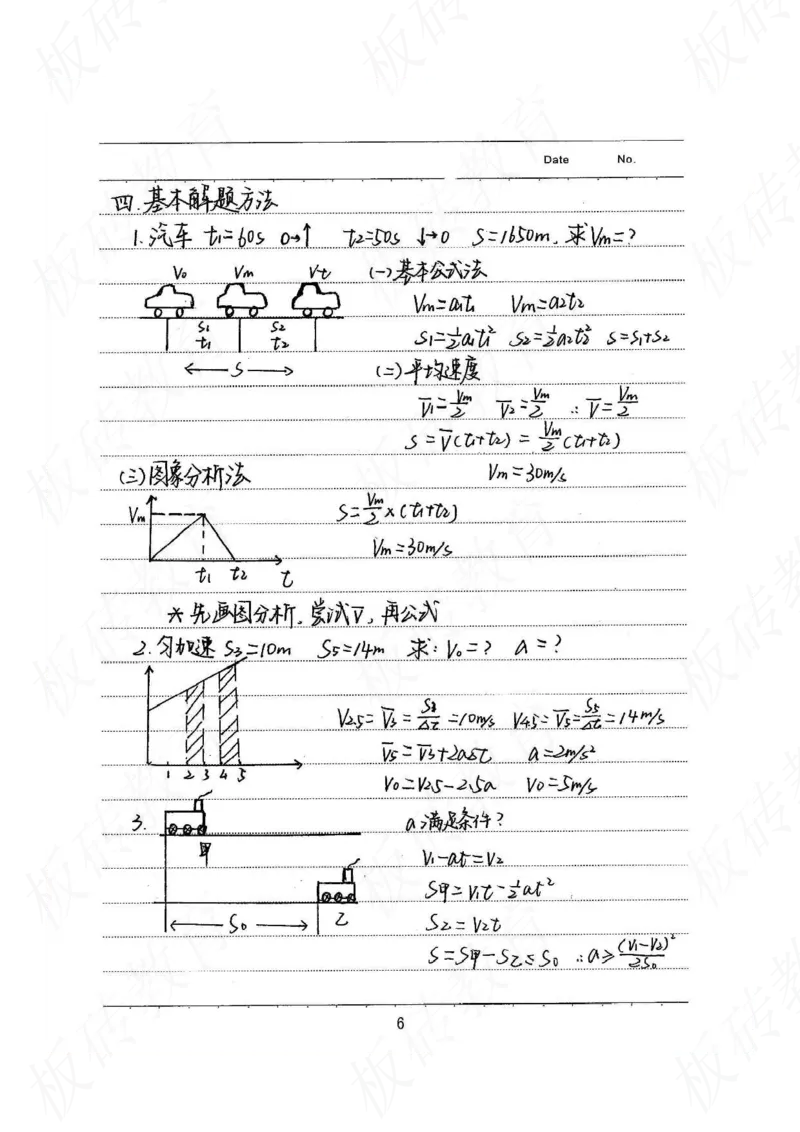 Date No.
四.基本解题方法
1.汽车 t1=60s 0→↑ t2=50s ↓→0 S=1650m,求Vm=?
V0 Vm Vt (一)基本公式法
Vm=a1t1 Vm=a2t2
S1 S2 S1=½a1t1² S2=½a2t2² S=S1+S2
t1 t2
←S→ (二)平均速度
V̅1=Vm/2 V̅2=Vm/2 ∴V̅=Vm/2
S=V̅(t1+t2)=Vm/2(t1+t2)
(三)图象分析法 Vm=30m/s
Vm S=Vm/2×(t1+t2)
Vm=30m/s
t1 t2 t
*先画图分析,尝试V̅,再公式
2.匀加速 S3=10m S5=14m 求:V0=? a=?
V2.5=V̅3=S3/Δt=10m/s V4.5=V̅5=S5/Δt=14m/s
V̅5=V̅3+2aΔt a=2m/s²
1 2 3 4 5 V0=V2.5-2.5a V0=5m/s
3. a满足条件?
甲 V1-at=V2
S甲=V1t-½at²
←S0→ 乙 S乙=V2t
S=S甲-S乙≤S0 ∴a≥(V1-V2)²/2S0
6
板砖教育